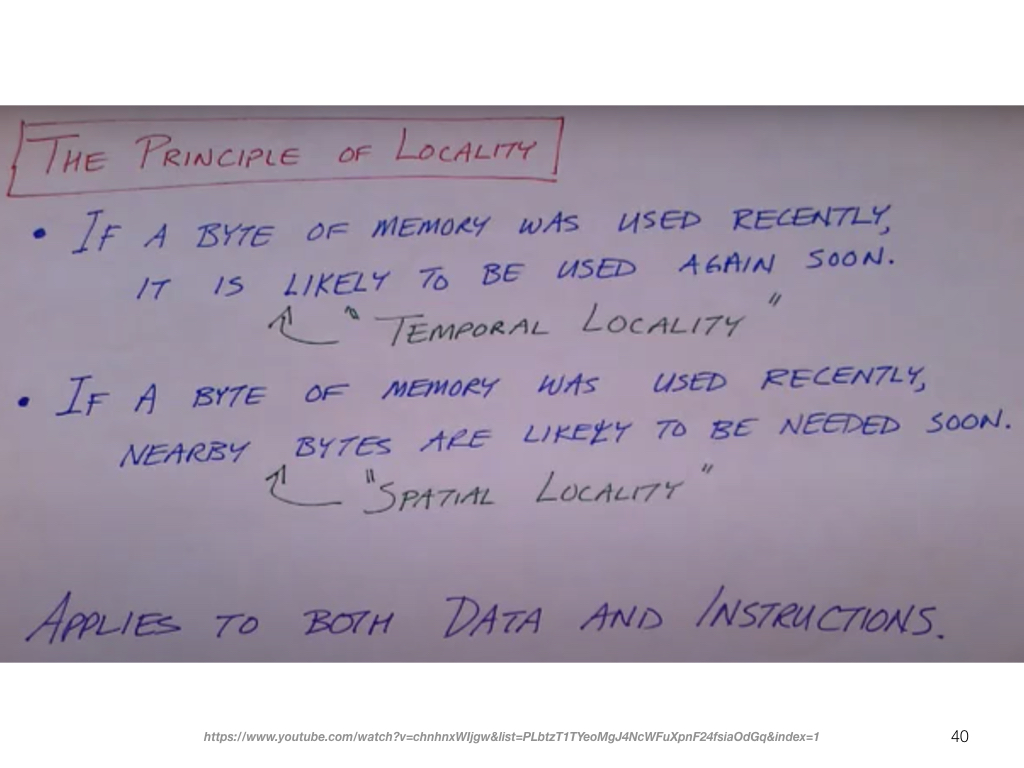 THE PRINCIPLE OF LOCALITY
• IF A BYTE OF MEMORY WAS USED RECENTLY,
IT IS LIKELY TO BE USED AGAIN SOON.
"TEMPORAL LOCALITY"
• IF A BYTE OF MEMORY WAS USED RECENTLY,
NEARBY BYTES ARE LIKELY TO BE NEEDED SOON.
"SPATIAL LOCALITY"
APPLIES TO BOTH DATA AND INSTRUCTIONS.
https://www.youtube.com/watch?v=chnhnxWljgw&list=PLbtzT1TYeoMgJ4NcWFuXpnF24fsiaOdGq&index=1
40